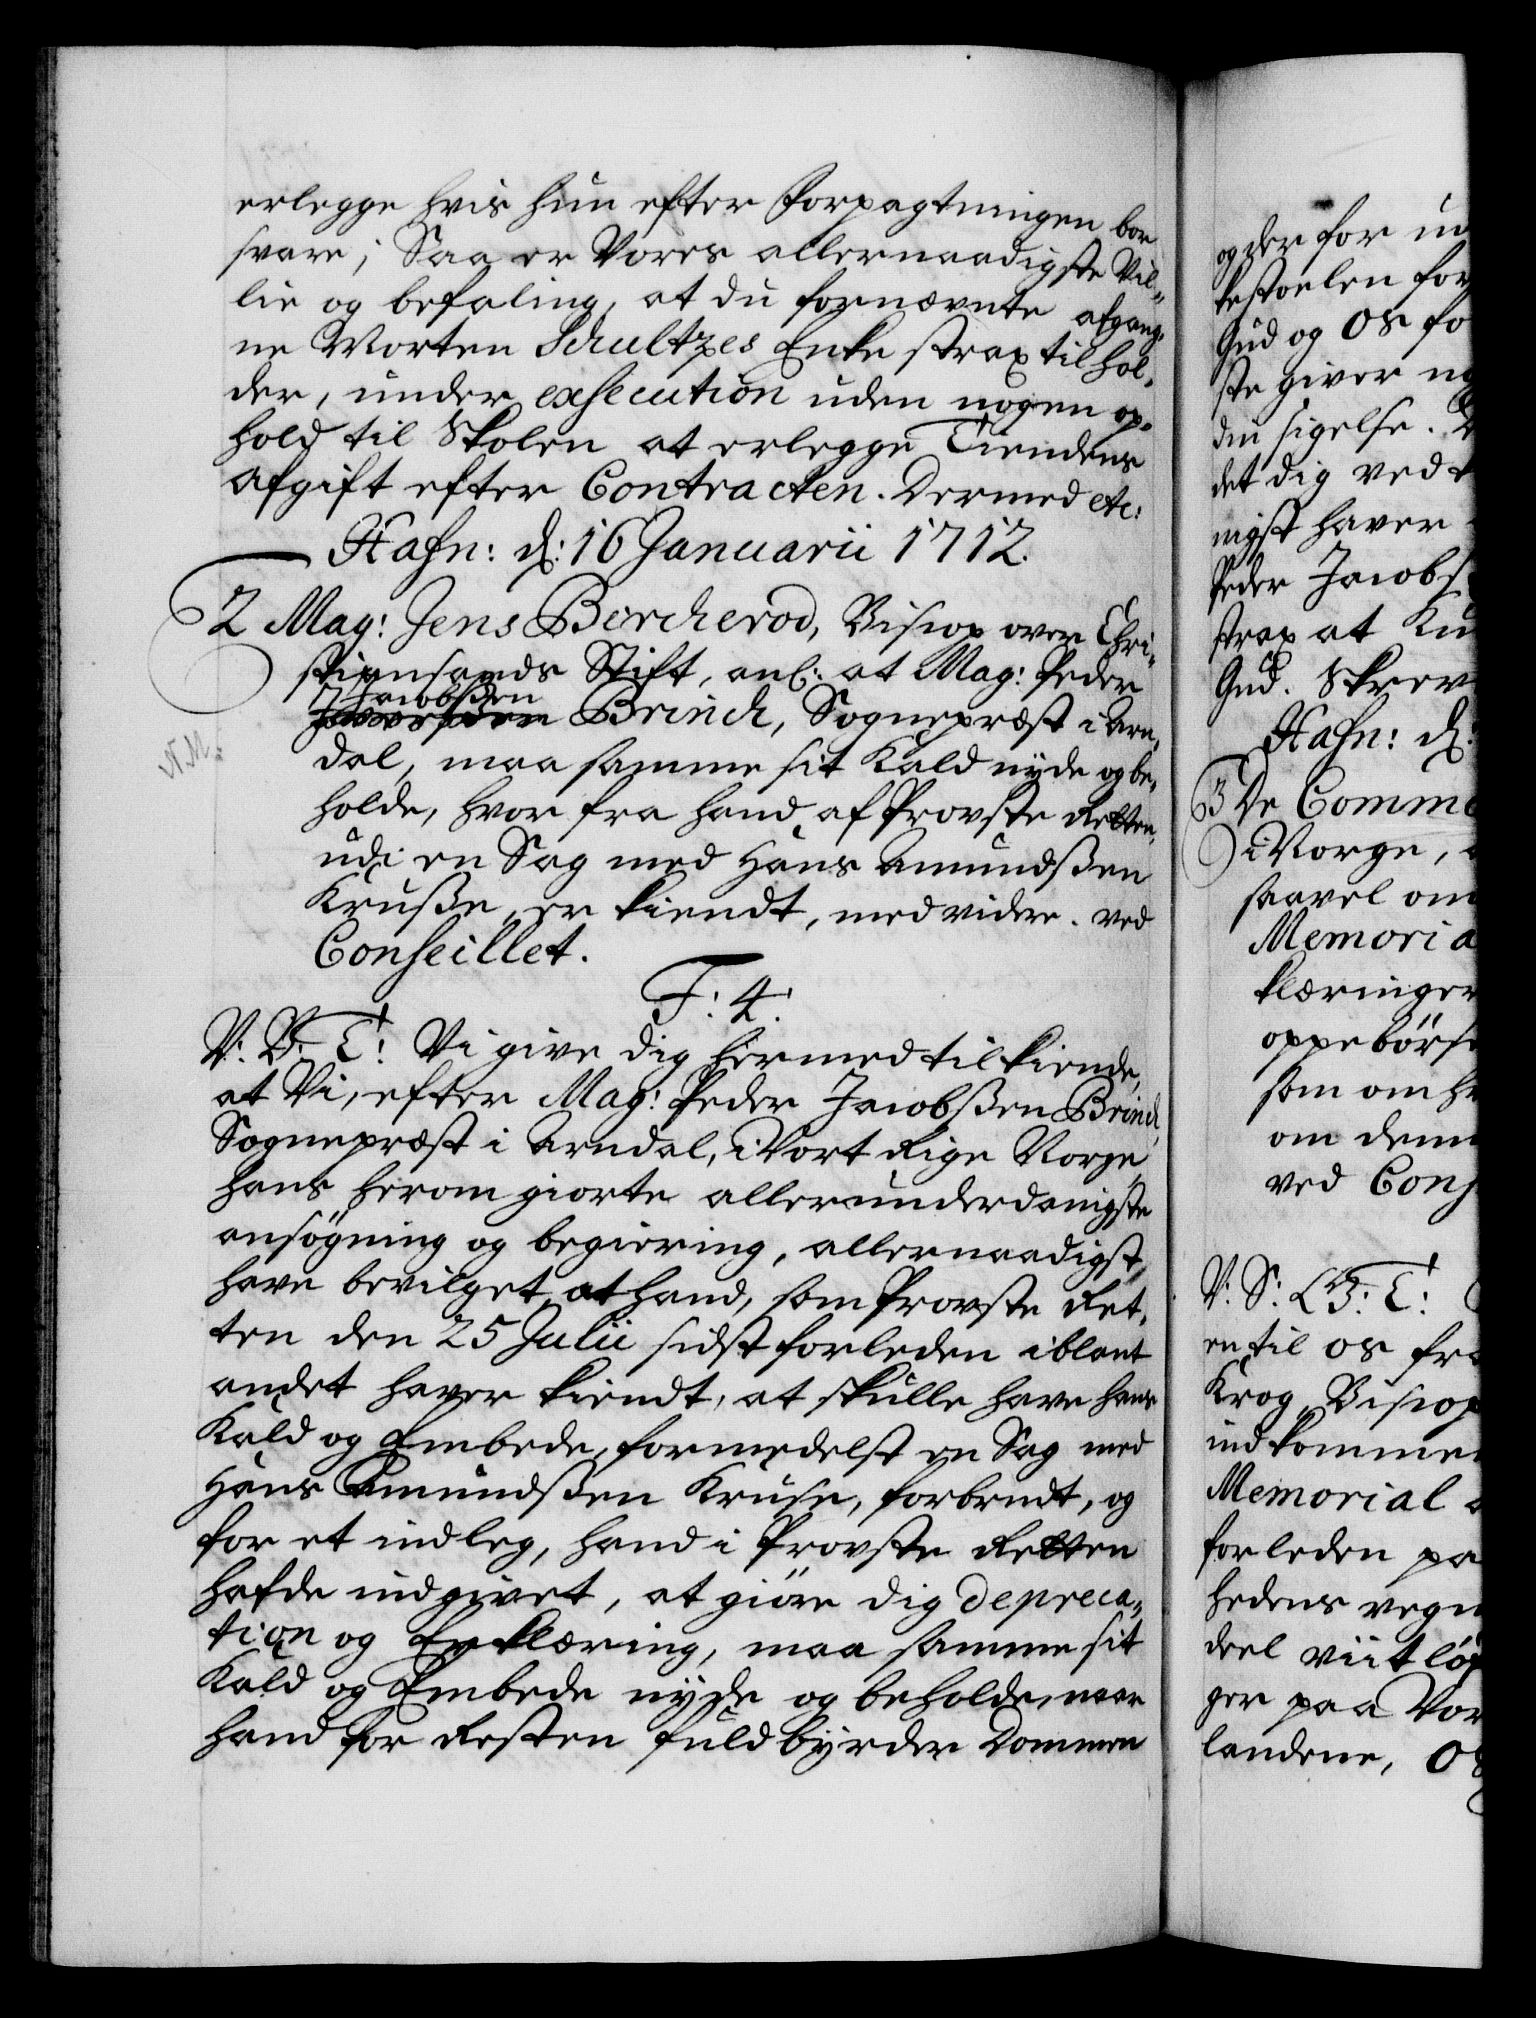 erlegge hvis hun efter Forpagtningen bør
svare; Saa er Vores allernaadigste Vil-
lie og befaling, at du fornævnte afgang-
ne Morten Schultzes Enke strax tilhol-
der, under exsecution uden nogen op-
hold til Skolen at erlegge Tiendens
Afgift efter Contracten. Dermed etc:
Hafn: d: 16 Januarii 1712.
2 Mag: Jens Bercherod, Bisiop over Chri-
stiansands Stift, anl: at Mag: Peder
Jacobsden
Brinch, Sognepræst i Arn-
dal, maa samme sit Kald nyde og be-
holde, hvor fra hand af Provste Retten,
udi en Sag med Hans Amundsßen
Krusße, er kiendt, med videre. ved
Conseillet.
F: 4:
V: B: T: Vi give dig hermed tilkiende,
at Vi, efter Mag: Peder Jacobsßen Brinch,
Sognepræst i Arndal, i Vort Rige Norge,
hans herom giorte allerunderdanigste
ansøgning og begiering, allernaadigst
have bevilget, at hand, som Provste Ret-
ten den 25 Julii sidst forleden iblant
andet haver kiendt, at skulle have hans
Kald og Embede, formedelst en Sag med
Hans Amundsßen Kruse, forbrudt, og
for et indleg, hand i Provste Retten
hafde indgivet, at giöre dig depreca-
tion og Erklæring, maa samme sit
Kald og Embede nyde og beholde, naar
hand for Resten fuldbyrder Dommen
og der for ud
kestoelen for
Gud og OS fo
ste giver
din sigelse.
det dig ved
nigst haver
Peder Jacobs
strax at Ku
Gud. Skrev
Hafn: d:
3 De Comme
i Norge,
saavel om
Memoria
klæringer
oppebörse
som om
om denn
ved Cons
V: S: L B: T:
en til os fra
Krog, Bisiop
indkommen
Memorial
forleden pa
hedens vegn
deel viitlöf
ger paa Vor
landene, OS